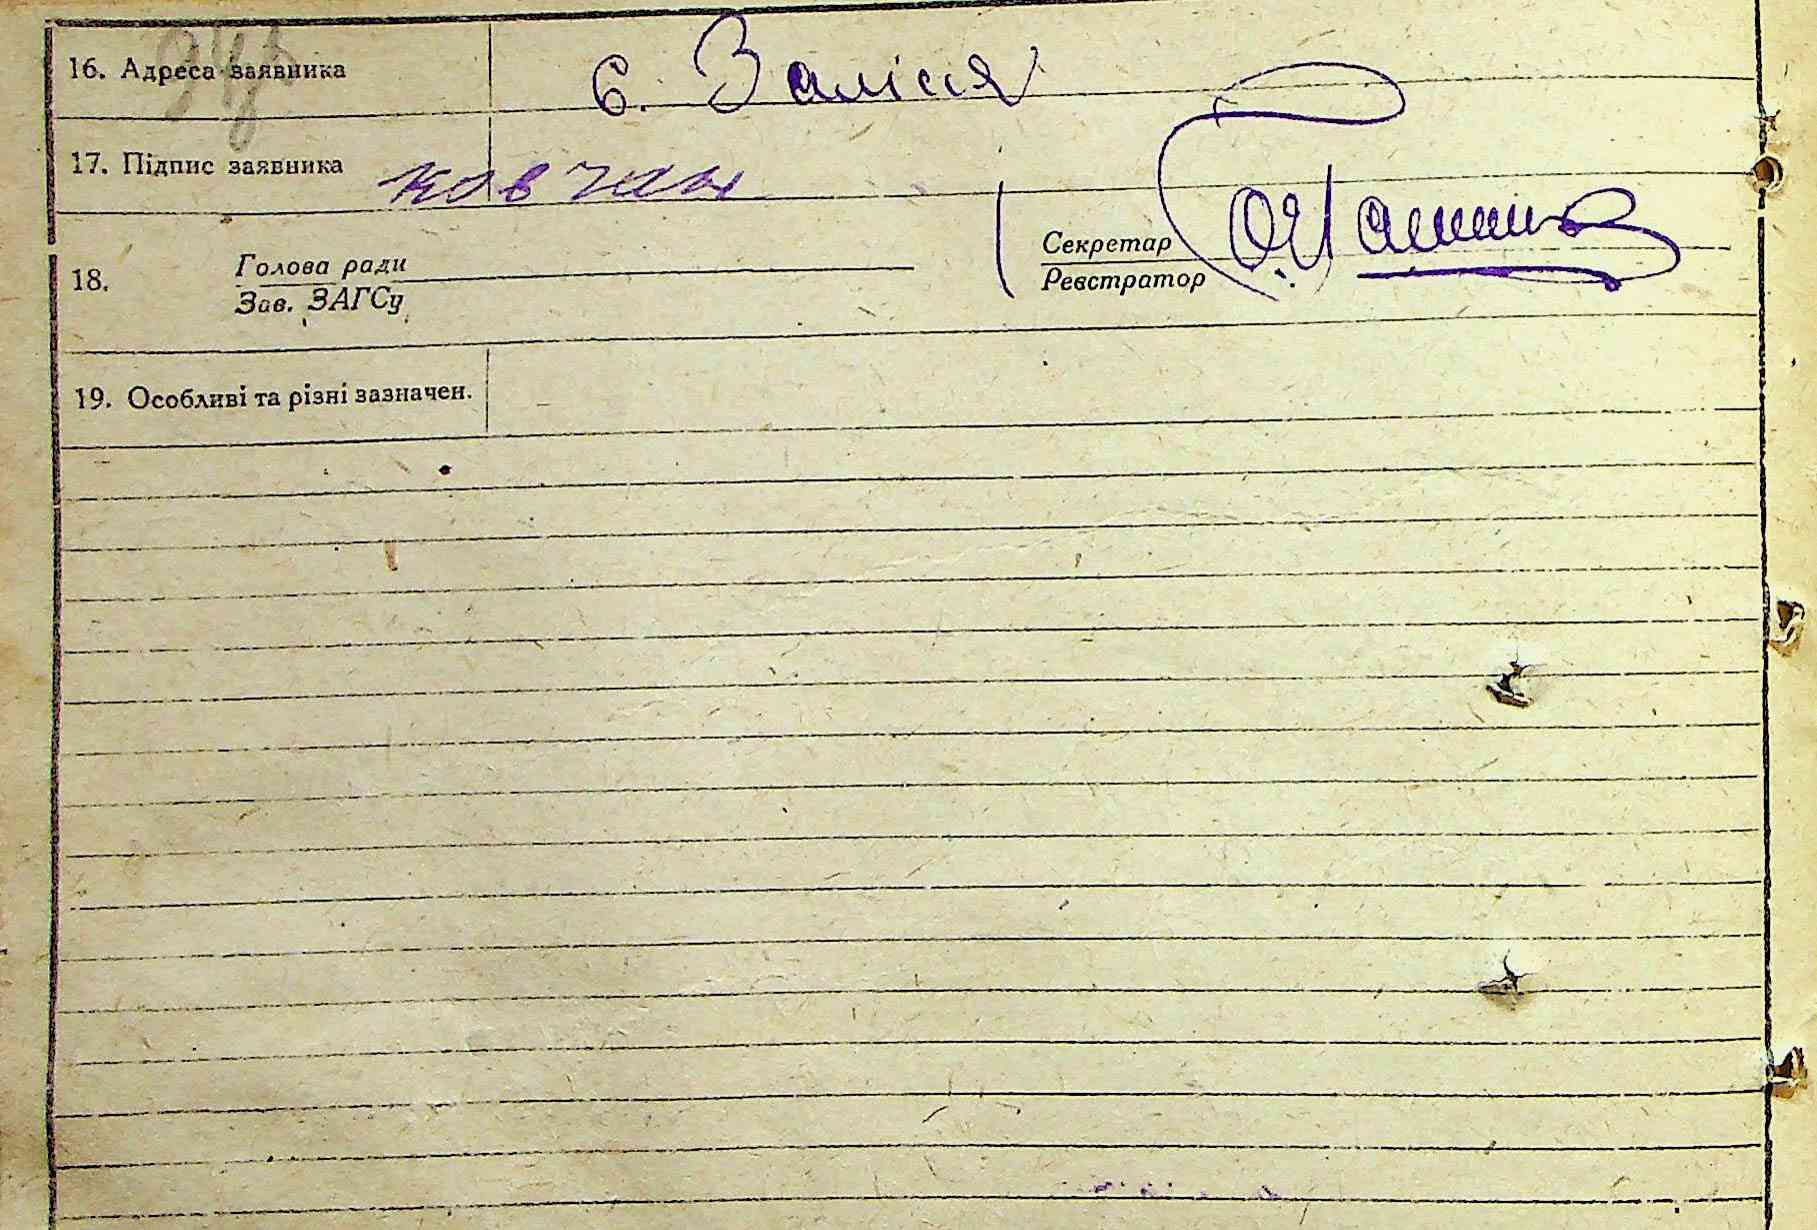 16. Адреса заявника с. Залісся
17. Підпис заявника ковчан
18. Голова ради Секретар
Зав. ЗАГСу Реєстратор
19. Особливі та різні зазначен.